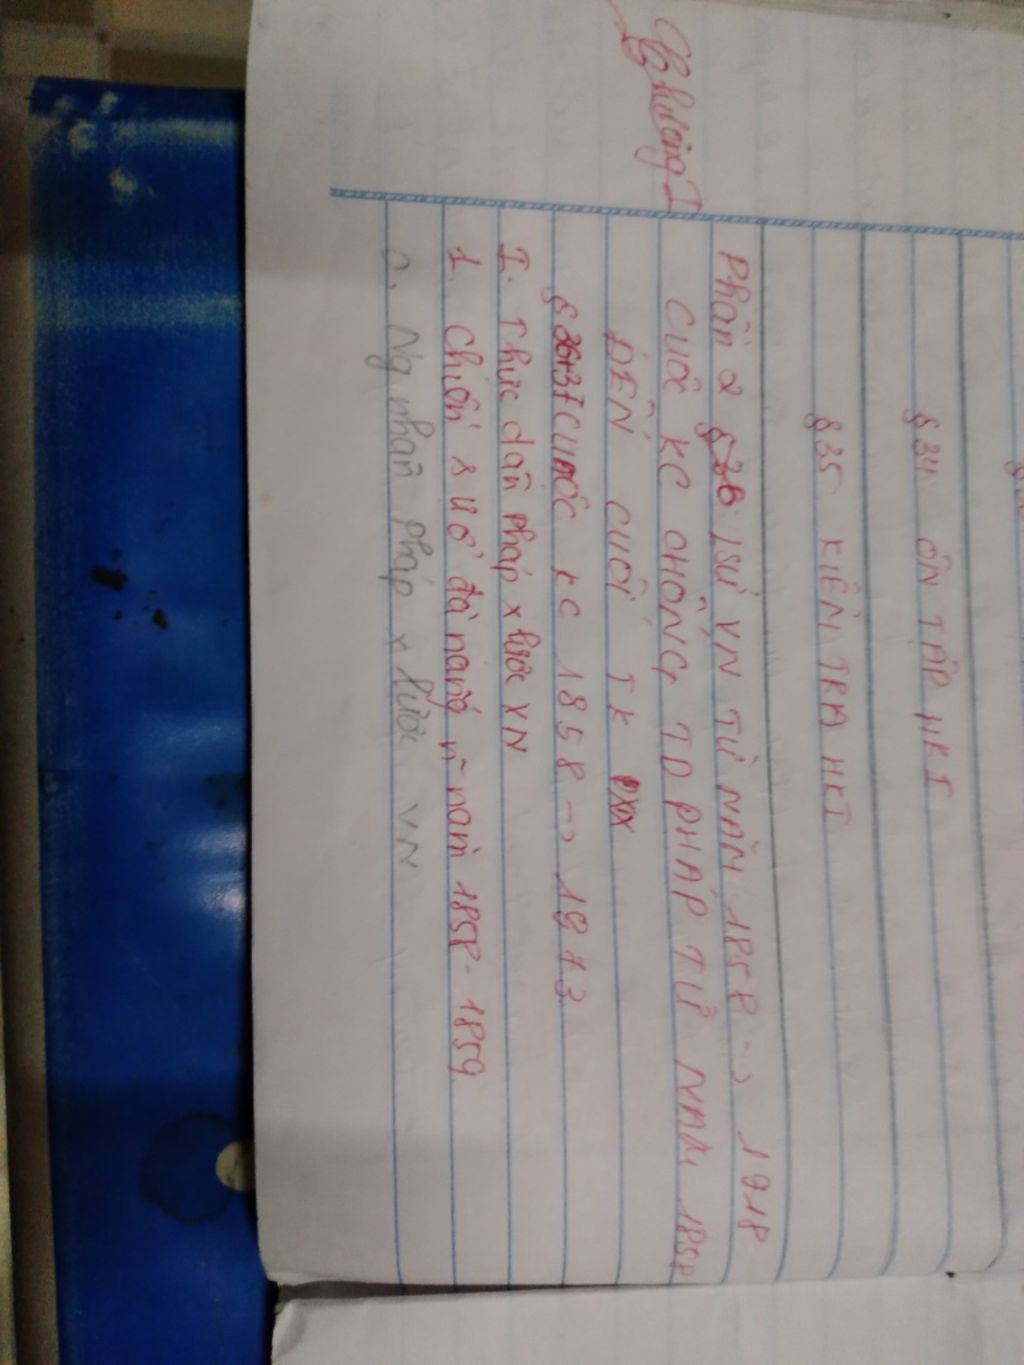 § 34 ÔN TẬP HKI
§ 35 KIỂM TRA HKI
Phần 2 LSỬ VN TỪ NĂM 1858 -> 1918
Chương I
CUỘC KC CHỐNG TD PHÁP TỪ NĂM 1858
ĐẾN CUỐI TK XIX
§ 36+37 CUỘC KC 1858 -> 1873
I. Thực dân Pháp x lược VN
1. Chiến sự ở đà nẵng n~ năm 1858-1859
a. Ng nhân pháp x lược VN